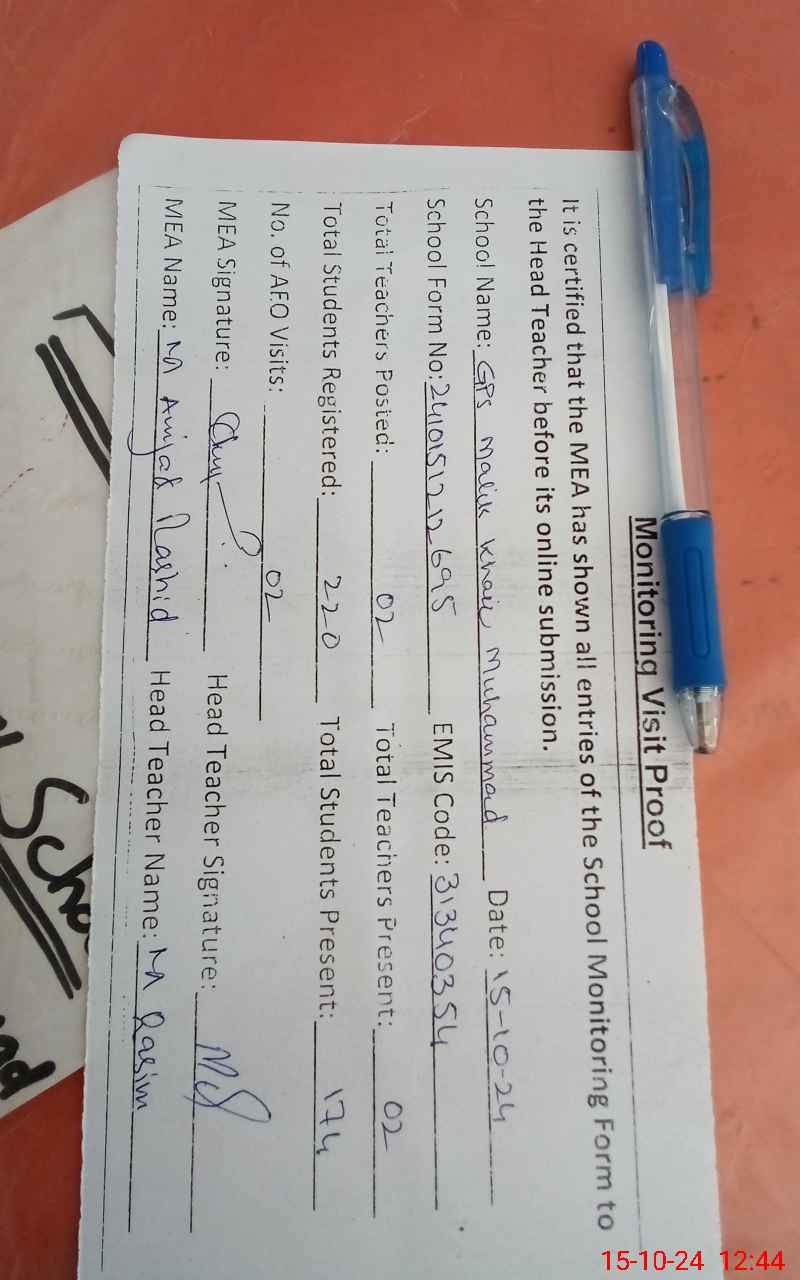 Monitoring Visit Proof
It is certified that the MEA has shown all entries of the School Monitoring Form to
the Head Teacher before its online submission.
School Name: GPS Malik Khair Muhammad Date: 15-10-24
School Form No: 2410151212695 EMIS Code: 31340354
Total Teachers Posted: 02 Total Teachers Present: 02
Total Students Registered: 220 Total Students Present: 174
No. of AEO Visits: 02
MEA Signature: Head Teacher Signature:
MEA Name: M Amjad Rashid Head Teacher Name: M Qasim
15-10-24 12:44